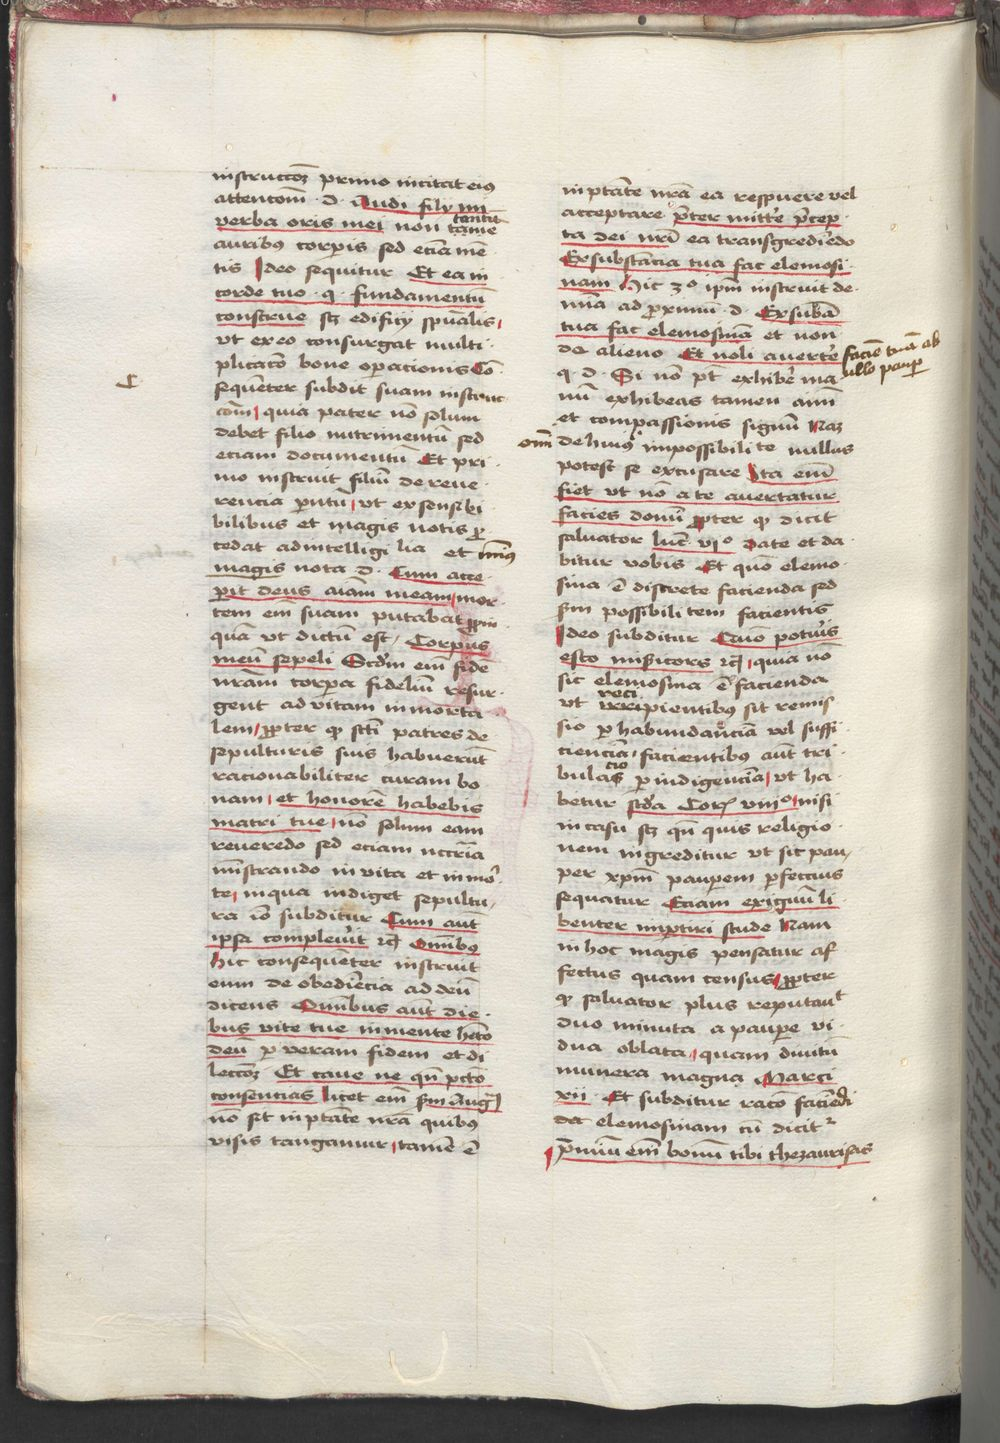 instruccoȝ primo incitat eiꝰ
attencom̄ · d · Audi fily mi
verba oris mei non tantū tame
auribꝰ corpis sed eciā mē
tis Ideo sequitur Et ea in
corde tuo · q · fundamentū
construe scȝ edificy spūalis
vt ex eo consurgat multi
plicato bone opacionis Cō
sequēter subdit suam instruc
com̄ quia pater nō solum
debet filio nutrimentū sed
eciam documentū Et pri
mo instruit filiū de reue
rencia pntū vt ex sensibi
bilibus et magis notis p
cedat ad intelligi lia et minꝰ
magis nota d · Cum acce
perit deus aīam meam mor
tem em̄ suam putabat
quā vt dictū est Corpus
meū sepeli Scdm em̄ fide
nram corpa fideliū resur
gent ad vitam inmorta
lem ꝓpter qꝫ sci patres de
sepulturis suis habuerūt
racionabiliter curam bo
nam et honorē habebis
matri tue nō solum eam
reueredo sed eciam nccria
mistrando in vita et in mor
te in qua indiget sepultu
ra iō subditur Cum aūt
ipsa compleuit rc Omībꝰ
hic consequēter instruit
eum de obediēcia ad deū
dicens Omībus aūt die
bus vite tue in mente heto
deū p veram fidem et di
leccoȝ Et caue ne qn pcto
consencias licet em̄ scdm Aug
nō sit in ptate nrā quibꝰ
visis tangamur tamē ē
in ptate nrā ea respuere vel
acceptare pter mitte pcep
ta dei nri ea transgrediēdo
Ex substācia tua fac elemosi
nam hic 3o ipm instruit de
mū ad pximū · d · Ex subā
tua fac elemosinā et non
de alieno Et noli auerte faciē tuā ab
ullo paupe
q · d · Si nō pt exhibe ma
nū exhibeas tamen aīm
et compassionis signū Nā
om̄ de huiꝰ impossibili te nullus
potest se excusare Ita em̄
fiet vt nō a te auertatur
facies domī ꝓpter qꝫ dicit
saluator luc vio date et da
bitur vobis Et quō elemo
sina ē discrete facienda sed
scdm possibili tem facientis
Ideo subditur Quō potuis
esto misicors rc quia nō
sic elemosina ē facienda
vt reci pientibꝰ sit remis
sio p habundanciā vel suffi
cienciā facientibus aūt tri
bulacio p indigenciā vt ha
betur scda Cor viiio nisi
in casu scȝ qn quis religio
nem ingreditur vt sic pau
per xpm paupem pfeccius
sequatur Eciam exiguū li
benter imptiri stude Nam
in hoc magis pensatur af
fectus quam census ꝓpter
qꝫ saluator plus reputauit
duo minuta a paupe vi
dua oblata quam diuitū
munera magna Marci
xii Et subditur raco faciēdi
elemosinam cū dicitr
Pmiū em̄ bonū tibi thezaurisas